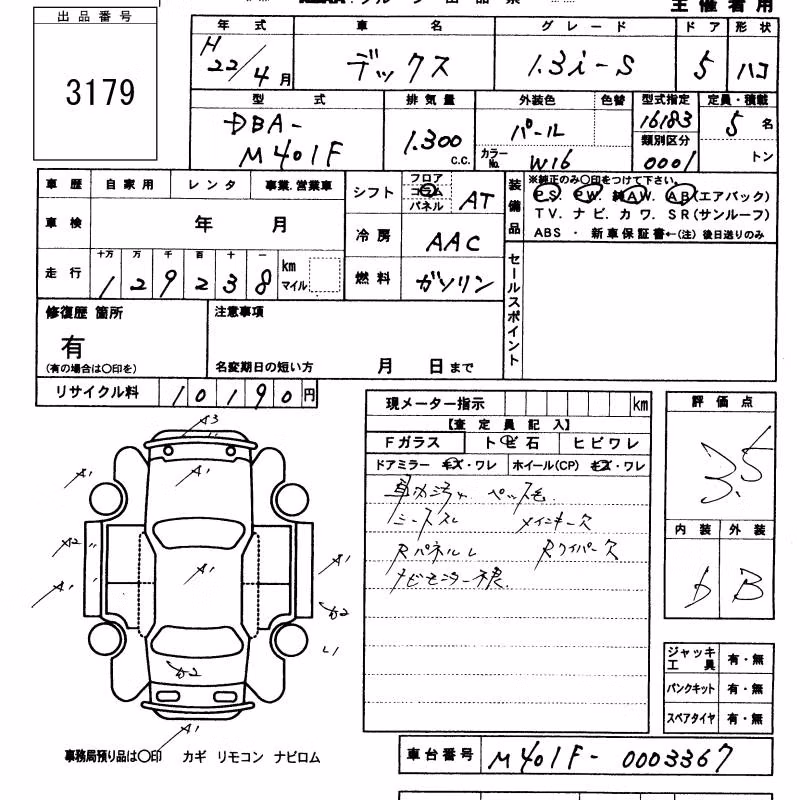 主催者用
出品番号
3179
年式 車名 グレード ドア 形状
H22/4月 デックス 1.3i-S 5 ハコ
型式 排気量 外装色 色替 型式指定 定員・積載
DBA-M401F 1.300 C.C. パール 16183 5名
カラーNo. W16 類別区分 0001 トン
車歴 自家用 レンタ 事業.営業車
車検 年 月
走行 十万 万 千 百 十 一
129238 km マイル
シフト フロア コラム パネル AT
冷房 AAC
燃料 ガソリン
装備品 ※純正のみ○印をつけて下さい。
PS. PW. 純AW. AB(エアバック)
TV. ナビ. カワ. SR(サンルーフ)
ABS ・ 新車保証書←(注) 後日送りのみ
セールスポイント
修復歴 箇所
有
(有の場合は○印を)
注意事項
名変期日の短い方 月 日まで
リサイクル料 10190円
現メーター指示 km
【査定員記入】
Fガラス トビ石 ヒビワレ
ドアミラー キズ・ワレ ホイール(CP) キズ・ワレ
車内汚れ ペット毛
シートスレ メインキー欠
Rパネル Rワイパー欠
ナビモニター不良
評価点
3.5
内装 外装
D B
A3
A1
A1
A2
A1
A1
A1
A2
L1
A2
A1
ジャッキ工具 有・無
パンクキット 有・無
スペアタイヤ 有・無
事務局預り品は○印 カギ リモコン ナビロム
車台番号 M401F-0003367